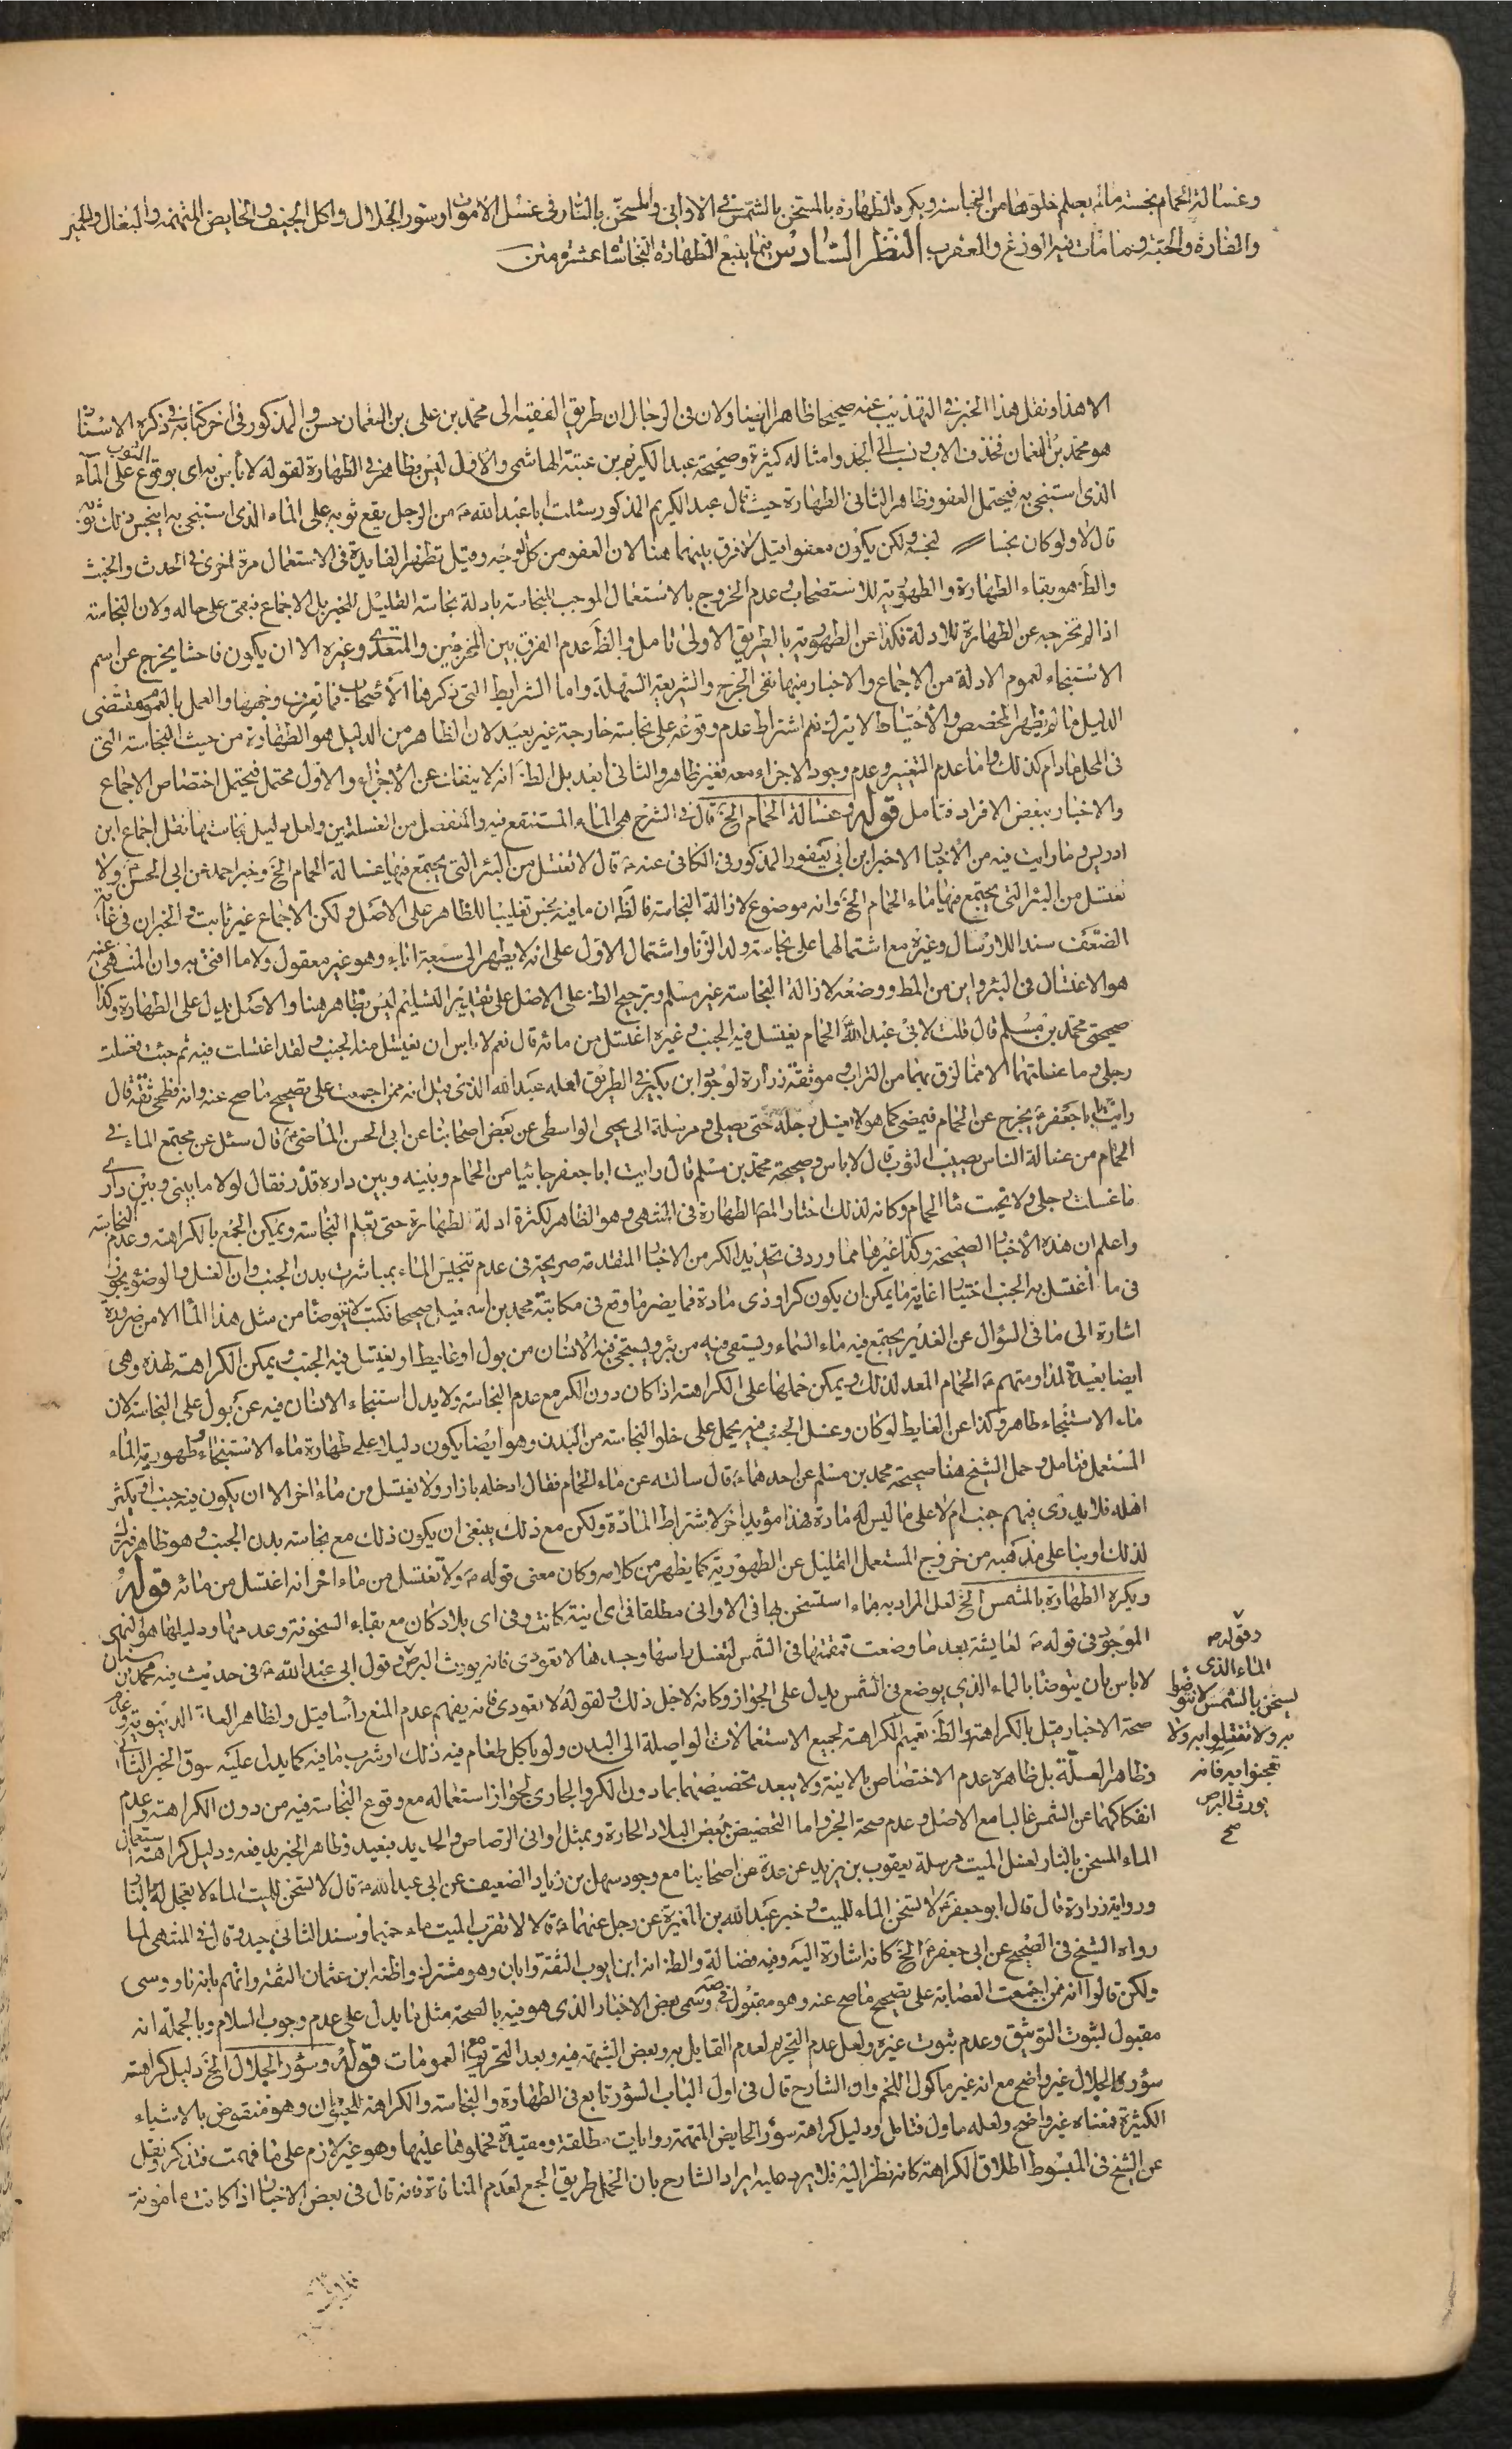 وغسالة الحمام نجسة ما لم يعلم خلوها من النجاسة ويكره الطهارة بالمسخن بالشمس في الاواني والمسخن بالنار في غسل الاموات وسؤر الجلال واكل الجيف والحايض المتهمة والبغال والحمير
والفارة والحية وما مات فيه الوزغ والعقرب النظر السادس فيما يتبع الطهارة النجاسات عشرة من
الا هذا ونقل هذا الخبر في التهذيب عنه صحيحا ظاهرا ايضا ولان في الرجال ان طريق الفقيه الى محمد بن علي بن النعمان حسن والمذكور في اخر كتابه في ذكره الاسناد
هو محمد بن النعمان فحذف الاب ونسب الى الجد وامثاله كثيرة وصحيحة عبد الكريم بن عتبة الهاشمي والاول ليس بظاهر في الطهارة لقوله لا باس به اي بوقوع الثوب على الماء
الذي استنجي به فيحتمل العفو وظاهر الثاني الطهارة حيث قال عبد الكريم المذكور سئلت ابا عبد الله ع من الرجل يقع ثوبه على الماء الذي استنجى به اينجس ذلك ثوبه
قال لا ولو كان نجسا لنجسه ولكن يكون معفوا قيل لا فرق بينهما هنا لان العفو من كل الوجه وقيل تظهر الفايدة في الاستعمال مرة اخرى في الحدث والخبث
والظ هو بقاء الطهارة والطهورية للاستصحاب وعدم الخروج بالاستعمال الموجب للنجاسة بادلة نجاسة القليل للخبر بل الاجماع فبقى على حاله ولان النجاسة
اذا لم تخرجه عن الطهارة للادلة فكذا عن الطهورية بالطريق الاولى تامل والظ عدم الفرق بين المخرجين والمتعدي وغيره الا ان يكون فاحشا يخرج عن اسم
الاستنجاء لعموم الادلة من الاجماع والاخبار منها نفي الحرج والشريعة السهلة واما الشرايط التي ذكرها الاصحاب فما نعرف وجهها والعمل بالعموم مقتضى
الدليل ما لم يظهر المخصص والاحتياط لا يترك نعم اشتراط عدم وقوعه على نجاسة خارجة غير بعيد لان الظاهر من الدليل هو الطهارة من حيث النجاسة التي
في المحل مادام كذلك واما عدم التغيير وعدم وجود الاجزاء معه فغير ظاهر والثاني ابعد بل الظ انه لا ينفك عن الاجزاء والاول محتمل فيحتمل اختصاص الاجماع
والاخبار ببعض الافراد فتامل قوله وغسالة الحمام الخ قال في الشرح هي الماء المستنقع فيه والمنفصل من الغسلة بين ولعل دليل نجاستها نقل اجماع ابن
ادريس وما رايت فيه من الاخبار الا خبر ابن ابي يعفور المذكور في الكافي عنه ع قال لا تغتسل من البئر التي يجتمع فيها غسالة الحمام الخ وخبر احمد عن ابي الحسن ع ولا
تغتسل من البئر التي يجتمع فيها ماء الحمام الخ وانه موضوع لازالة النجاسة فالظ ان ما فيه نجس تغليبا للظاهر على الاصل ولكن الاجماع غير ثابت والخبران في غاية
الضعف سندا للارسال وغيره مع اشتمالهما على نجاسة ولد الزنا واشتمال الاول على انه لا يطهر الى سبعة اناء وهو غير معقول ولا ما افتى به وان المنهي عنه
هو الاغتسال في البئر واين من المط ووضعه لازالة النجاسة غير مسلم وترجيح الظ على الاصل على تقدير التسليم ليس بظاهر هنا والاصل يدل على الطهارة وكذا
صحيحتي محمد بن مسلم قال قلت لابي عبد الله ع الحمام يغتسل فيه الجنب وغيره اغتسل من مائه قال نعم لا باس ان يغتسل منه الجنب ولقد اغتسلت فيه ثم جئت فغسلت
رجلي وما غسلتهما الا مما لزق بهما من التراب وموثقة زرارة لوجود ابن بكير في الطريق لعله عبد الله الذي قيل انه ممن اجمعت على تصحيح ما صح عنه وانه فطحي ثقة قال
رايت ابا جعفر ع يخرج عن الحمام فيمضي كما هو لا يغسل رجله حتى يصلي ومرسلة ابي يحيى الواسطي عن بعض اصحابنا عن ابي الحسن الماضي ع قال سئل عن مجتمع الماء في
الحمام من غسالة الناس يصيب الثوب قال لا باس وصحيحة محمد بن مسلم قال رايت ابا جعفر جائيا من الحمام وبينه وبين داره قذر فقال لولا ما بيني وبين داري
ما غسلت رجلي ولا تجنبت ماء الحمام وكانه لذلك اختار المصا لطهارة في المنتهى وهو الظاهر لكثرة ادلة الطهارة حتى تعلم النجاسة ويمكن الجمع بالكراهة وعدم النجاسة
واعلم ان هذه الاخبار الصحيحة وكذا غيرها مما ورد في تحديد الكر من الاخبار المتقدمة صريحة في عدم تنجيس الماء بمباشرت بدن الجنب وان الغسل والوضوء يجوز
في ما اغتسل به الجنب اختيارا غاية ما يمكن ان يكون كرا وذي مادة فما يضر ما وقع في مكاتبة محمد بن اسمعيل صحيحا فكتب لا تتوضأ من مثل هذا الماء الا من ضرورة
اشارة الى ما في السؤال عن الغدير يجتمع فيه ماء السماء ويستقى فيه من بئر ويستنجي فيه الانسان من بول او غايط او يغتسل فيه الجنب ويمكن الكراهة لهذه وهي
ايضا بعيدة لمداومتهم ع الحمام المعد لذلك ويمكن حملها على الكراهة اذا كان دون الكر مع عدم النجاسة ولا يدل استنجاء الانسان فيه عن بول على النجاسة لان
ماء الاستنجاء طاهر وكذا عن الغايط لو كان وغسل الجنب فيه يحمل على خلو النجاسة من البدن وهو ايضا يكون دليلا على طهارة ماء الاستنجاء وطهورية الماء
المستعمل فتامل وحمل الشيخ هنا صحيحة محمد بن مسلم عن احدهماء قال سالته عن ماء الحمام فقال ادخله بازار ولا تغتسل من ماء اخر الا ان يكون فيه جنب او يكثر
اهله فلا يدرى فيهم جنب ام لا على ما ليس له مادة فهذا مؤيد اخر لاشتراط المادة ولكن مع ذلك ينبغي ان يكون ذلك مع نجاسة بدن الجنب وهو ظاهر
لذلك او بناء على مذهبه من خروج المستعمل القليل عن الطهورية كما يظهر من كلامه وكان معنى قوله ع ولا تغتسل من ماء اخر انه اغتسل من مائه قوله
ويكره الطهارة بالمشمس الخ لعل المراد به ماء استسخن بها في الاواني مطلقا في اي انية كانت وفي اي بلاد كان مع بقاء السخونة وعدمها ودليلها هو النهي
الموجود في قوله ع لعايشة بعد ما وضعت قمقمتها في الشمس لتغسل راسها وجسدها لا تعودي فانه يورث البرص وقول ابي عبد الله ع في حديث فيه محمد بن سنان
لا باس بان يتوضأ بالماء الذي يوضع في الشمس يدل على الجواز وكانه لاجل ذلك ولقوله لا تعودي فانه يفهم عدم المنع رأسا قيل ولظاهر العلة الدنيوية وعدم
صحة الاخبار قيل بالكراهة والظ تعميم الكراهة لجميع الاستعمالات الواصلة الى البدن ولو باكل طعام فيه ذلك او شرب ما فيه كما يدل عليه سوق الخبر الثاني
وظاهر العلة بل ظاهره عدم الاختصاص بالانية ولا يبعد تخصيصهما بما دون الكر والجاري لجواز استعماله مع وقوع النجاسة فيه من دون الكراهة وعدم
انفكاكهما عن الشمس غالبا مع الاصل وعدم صحة الخبر واما التخصيص ببعض البلاد الحارة وبمثل اواني الرصاص والحديد فبعيد وظاهر الخبر يدفعه ودليل كراهة استعمال
الماء المسخن بالنار لغسل الميت مرسلة يعقوب بن يزيد عن عدة من اصحابنا مع وجود سهل بن زياد الضعيف عن ابي عبد الله ع قال لا تسخن للميت الماء لا تعجل له النار
ورواية زرارة قال قال ابو جعفر ع لا تسخن الماء للميت وخبر عبد الله بن المغيرة عن رجل عنهما ع قالا لا تقرب الميت ماء حميما وسند الثاني جيد وقال في المنتهى لما
رواه الشيخ في الصحيح عن ابي جعفر ع الخ كانه اشارة اليه وفيه فضالة والظ انه ابن ايوب الثقة وابان وهو مشترك واظنه ابن عثمان الثقة واتهم بانه ناووسى
ولكن قالوا انه ممن اجمعت العصابة على تصحيح ما صح عنه وهو مقبول في صه وسمى بعض الاخبار الذي هو فيه بالصحة مثل ما يدل على عدم وجوب السلام وبالجملة انه
مقبول لثبوت التوثيق وعدم ثبوت غيره ولعل عدم التحريم لعدم القايل به وبعض الشبهة فيه وبعد التحريم مع العمومات قوله وسؤر الجلال الخ دليل كراهة
سؤر الجلال غير واضح مع انه غير ماكول اللحم وان الشارح قال في اول الباب السؤر تابع في الطهارة والنجاسة والكراهة للحيوان وهو منقوض بالاشياء
الكثيرة فمعناه غير واضح ولعله ماول فتامل ودليل كراهة سؤر الحايض المتهمة روايات مطلقة ومقيدة فحملوها عليها وهو غير لازم على ما فهمت فتذكر ونقل
عن الشيخ في المبسوط اطلاق الكراهة كانه نظر اليه فلا يرد عليه ايراد الشارح بان الحمل طريق الجمع لعدم المنافاة فانه قال في بعض الاخبار اذا كانت مامونة
وقوله ص
الماء الذي
يسخن بالشمس لا تتوضوا
به ولا تغتسلوا به ولا
تعجنوا به فانه
يورث البرص
صح